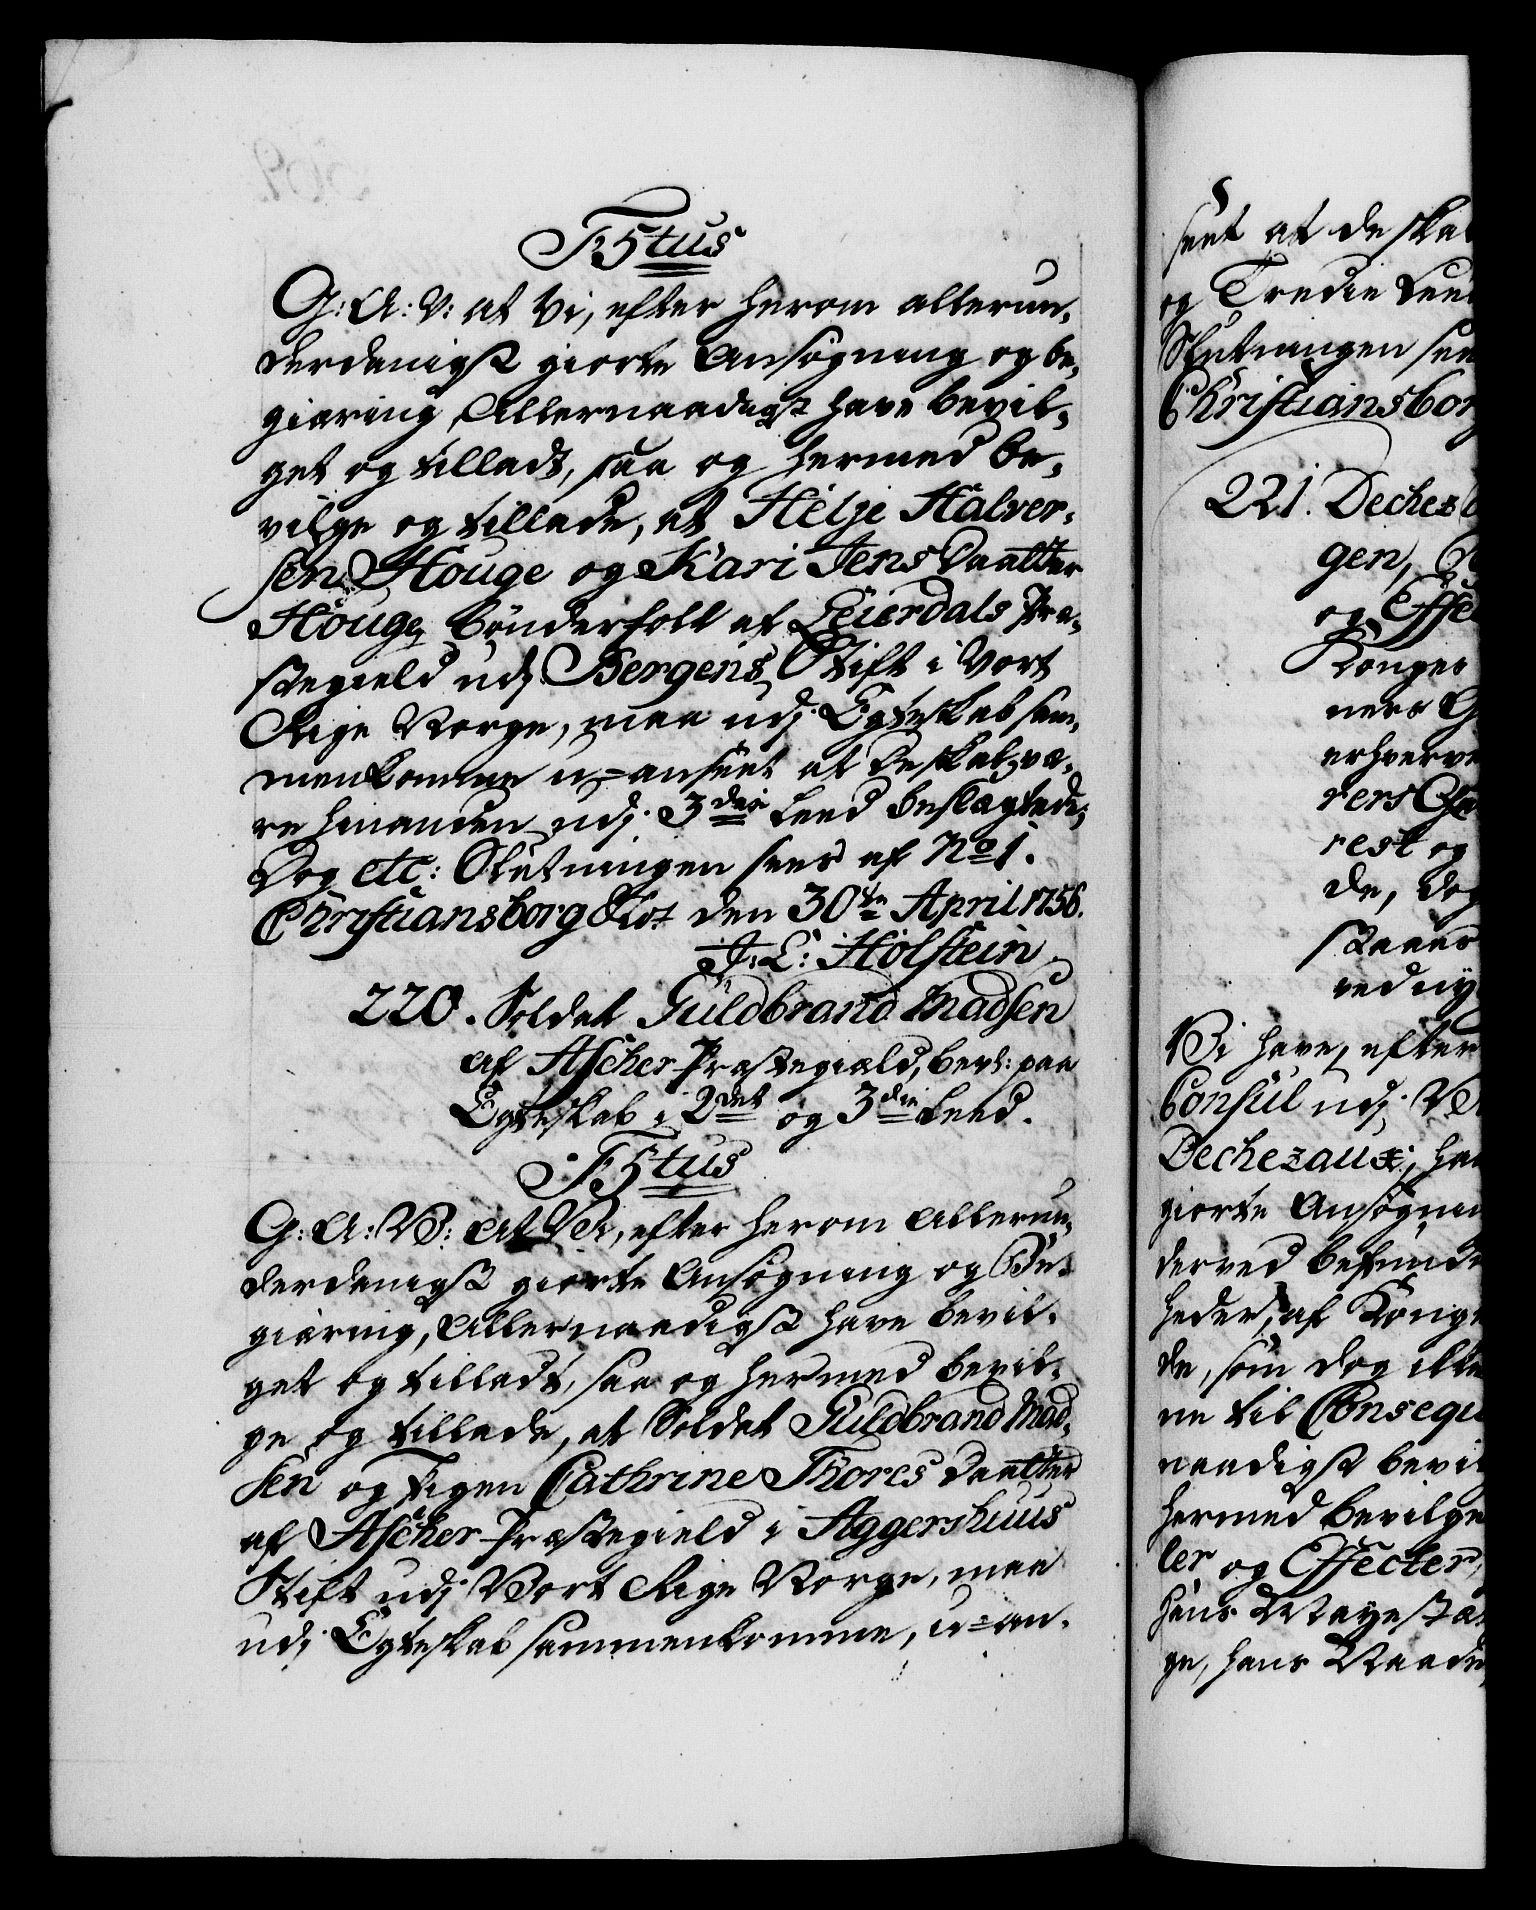 F5tus
G: A: V: at Vi, efter herom allerun,
derdanigst giorte Ansøgning og be,
giæring, Allernaadigst have bevil,
get og tilladt, saa og hermed be,
vilge og tillade, at Helje Halver,
sen Houge og Kari Jens Daatter
Houge, bönderfolk af Leierdals Præ,
stegield udj Bergens Stift i Vort
Rige Norge, maa udj Egteskab sam,
menkomme u-anseet at de skal væ,
re hinanden udj 3die Leed beslægtede;
Dog etc: Slutningen sees af No 1.
Christiansborg Slot den 30te April 1756.
J: L: Holstein
220. Soldat Guldbrand Madsen
af Ascher Præstegiæld, bevl: paa
Egteskab i 2det og 3die Leed.
F5tus
G: A: V: at Vi, efter herom allerun,
derdanigst giorte Ansøgning og Be,
giæring, Allernaadigst have bevil,
get og tilladt, saa og hermed bevil,
ge og tillade, at Soldat Guldbrand Mad,
sen og Pigen Cathrine Thores Daatter
af Ascher Præstegield i Aggershuus
Stift udj Vort Rige Norge, maa
udj Egteskab sammenkomme, u-an,
seet at de skal
og Tredie Leed
Slutningen see
Christiansborg
221. Dechez
gen,
og Effe
Konges
ners
erhverve
rers
rest og
de, dog
staaer
ved ny
Vi have, efter
Consul udj
Dechezaux, ha
giorte Ansøgnin
derved befunde
heder, af Konge
de, som dog ikke
ne til Consequ
naadigst bevil
hermed bevilge
ler og Effecter,
hans Mayestæ
ge, hans Naade